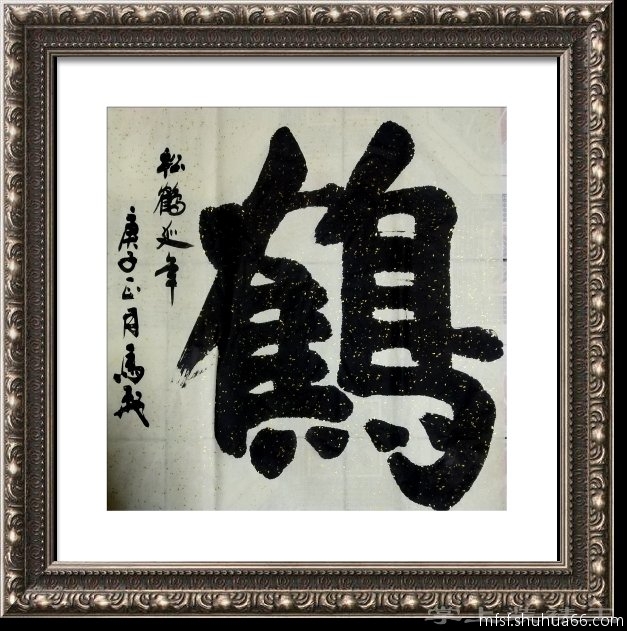 鶴
松鶴延年
庚子正月馬成
掌上美法王
mfsf.shuhua66.com